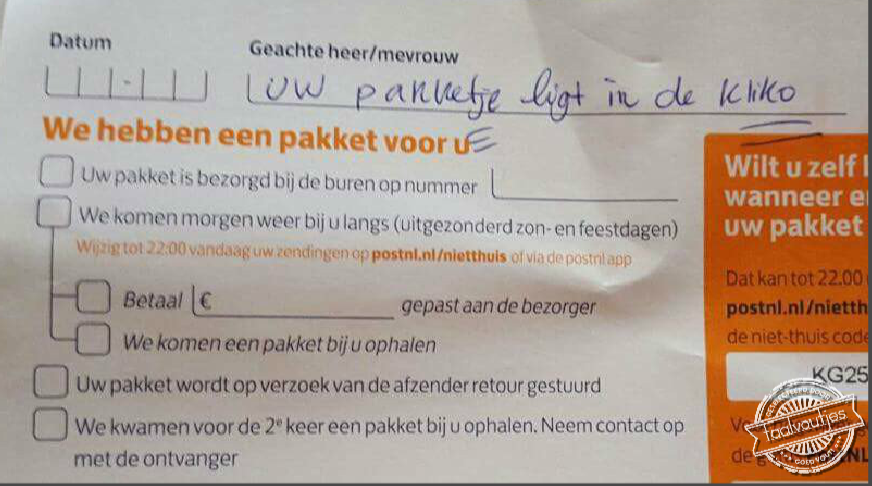 Datum
Geachte heer/mevrouw
Uw pakketje ligt in de kliko
We hebben een pakket voor u
Uw pakket is bezorgd bij de buren op nummer
We komen morgen weer bij u langs (uitgezonderd zon- en feestdagen)
Wijzig tot 22:00 vandaag uw zendingen op postnl.nl/nietthuis of via de postnl app
Betaal € gepast aan de bezorger
We komen een pakket bij u ophalen
Uw pakket wordt op verzoek van de afzender retour gestuurd
We kwamen voor de 2e keer een pakket bij u ophalen. Neem contact op
met de ontvanger
Wilt u zelf
wanneer e
uw pakket
Dat kan tot 22.00
postnl.nl/nietth
de niet-thuis code
KG25
Taalvoutjes